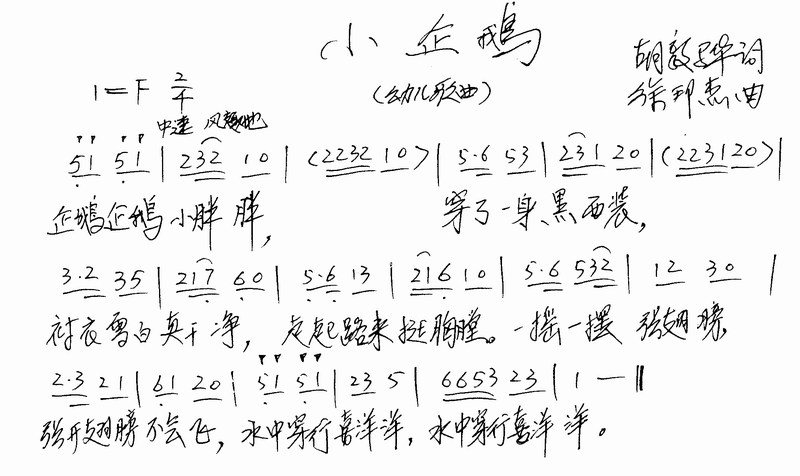 小企鹅
胡敦骅词
1=F 2/4
(幼儿歌曲)
徐邦杰曲
中速 风趣地
51 51 | 232 10 | (2232 10) | 5·6 53 | 231 20 | (2231 20) |
企鹅企鹅小胖胖, 穿了一身黑西装,
3·2 35 | 217 60 | 5·6 13 | 216 10 | 5·6 532 | 12 30 |
衬衣雪白真干净, 走起路来挺胸膛。一摇一摆 张翅膀,
2·3 21 | 61 20 | 51 51 | 23 5 | 6653 23 | 1 — ‖
张开翅膀不会飞, 水中穿行喜洋洋, 水中穿行喜洋洋。